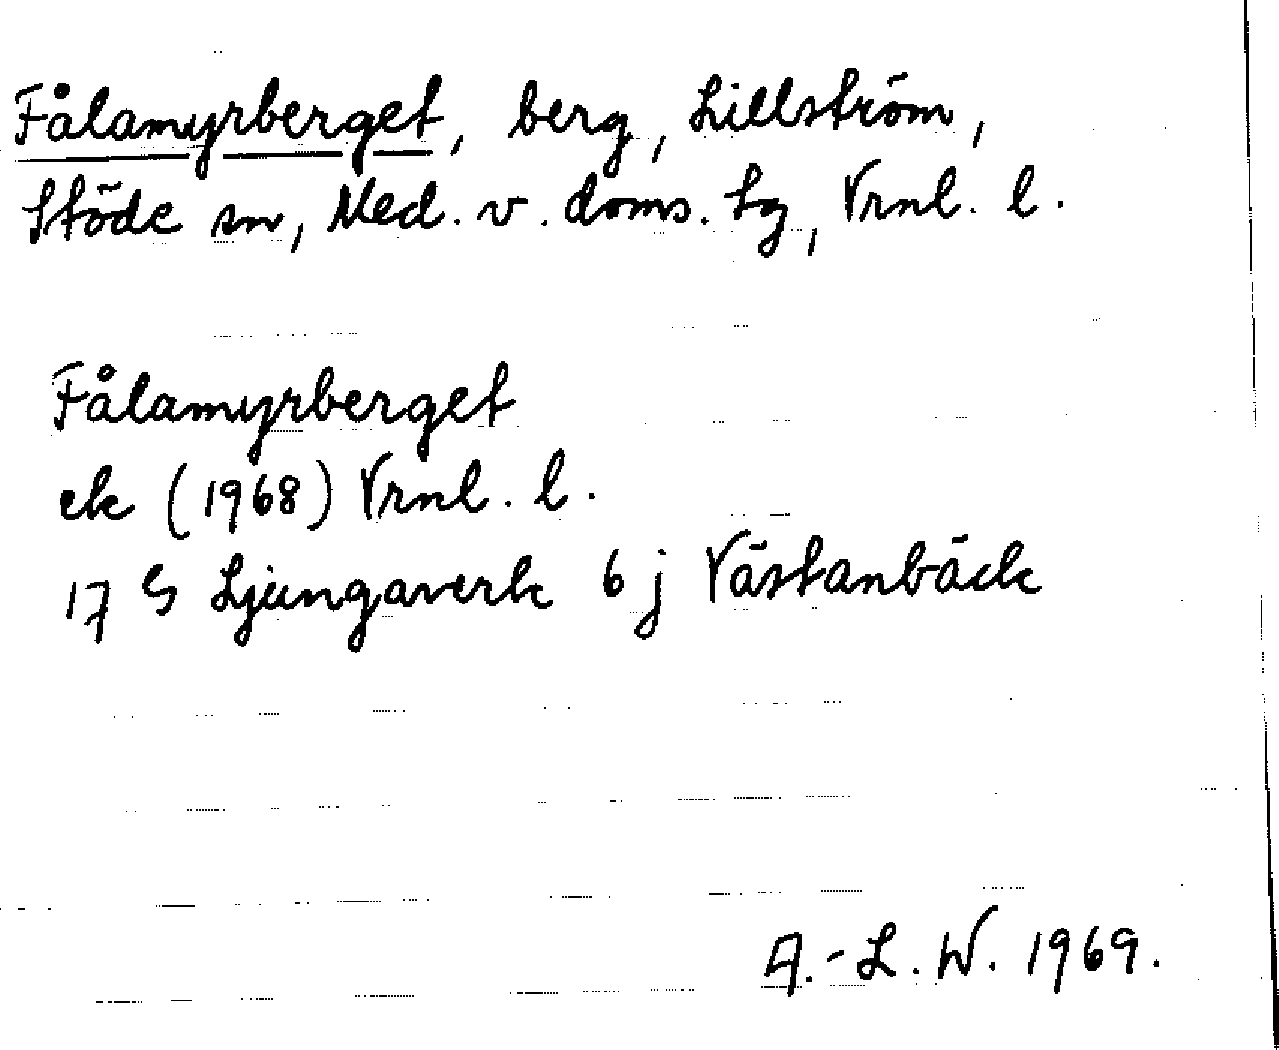 Fålamyrberget, berg, Lillström,
Stöde sn, Med. v. doms. tg, Vrnl. l.
Fålamyrberget
ek (1968) Vrnl. l.
17 G Ljungaverk 6 j Västanbäck
A.-L. W. 1969.